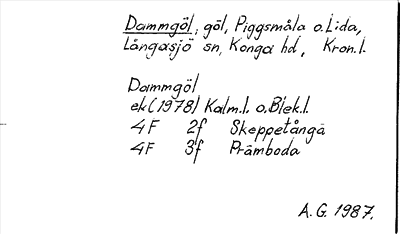 Dammgöl, göl, Piggsmåla o. Lida,
Långasjö sn, Konga hd, Kron.l.
Dammgöl
ek (1978) Kalm.l. o. Blek.l.
4F 2f Skeppetånga
4F 3f Prämboda
A.G. 1987.